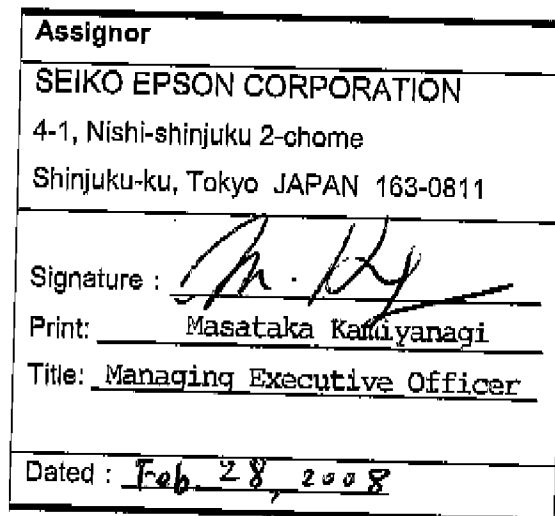 Assignor
SEIKO EPSON CORPORATION
4-1, Nishi-shinjuku 2-chome
Shinjuku-ku, Tokyo JAPAN 163-0811
Signature :
Print: Masataka Kamiyanagi
Title: Managing Executive Officer
Dated : Feb. 28, 2008